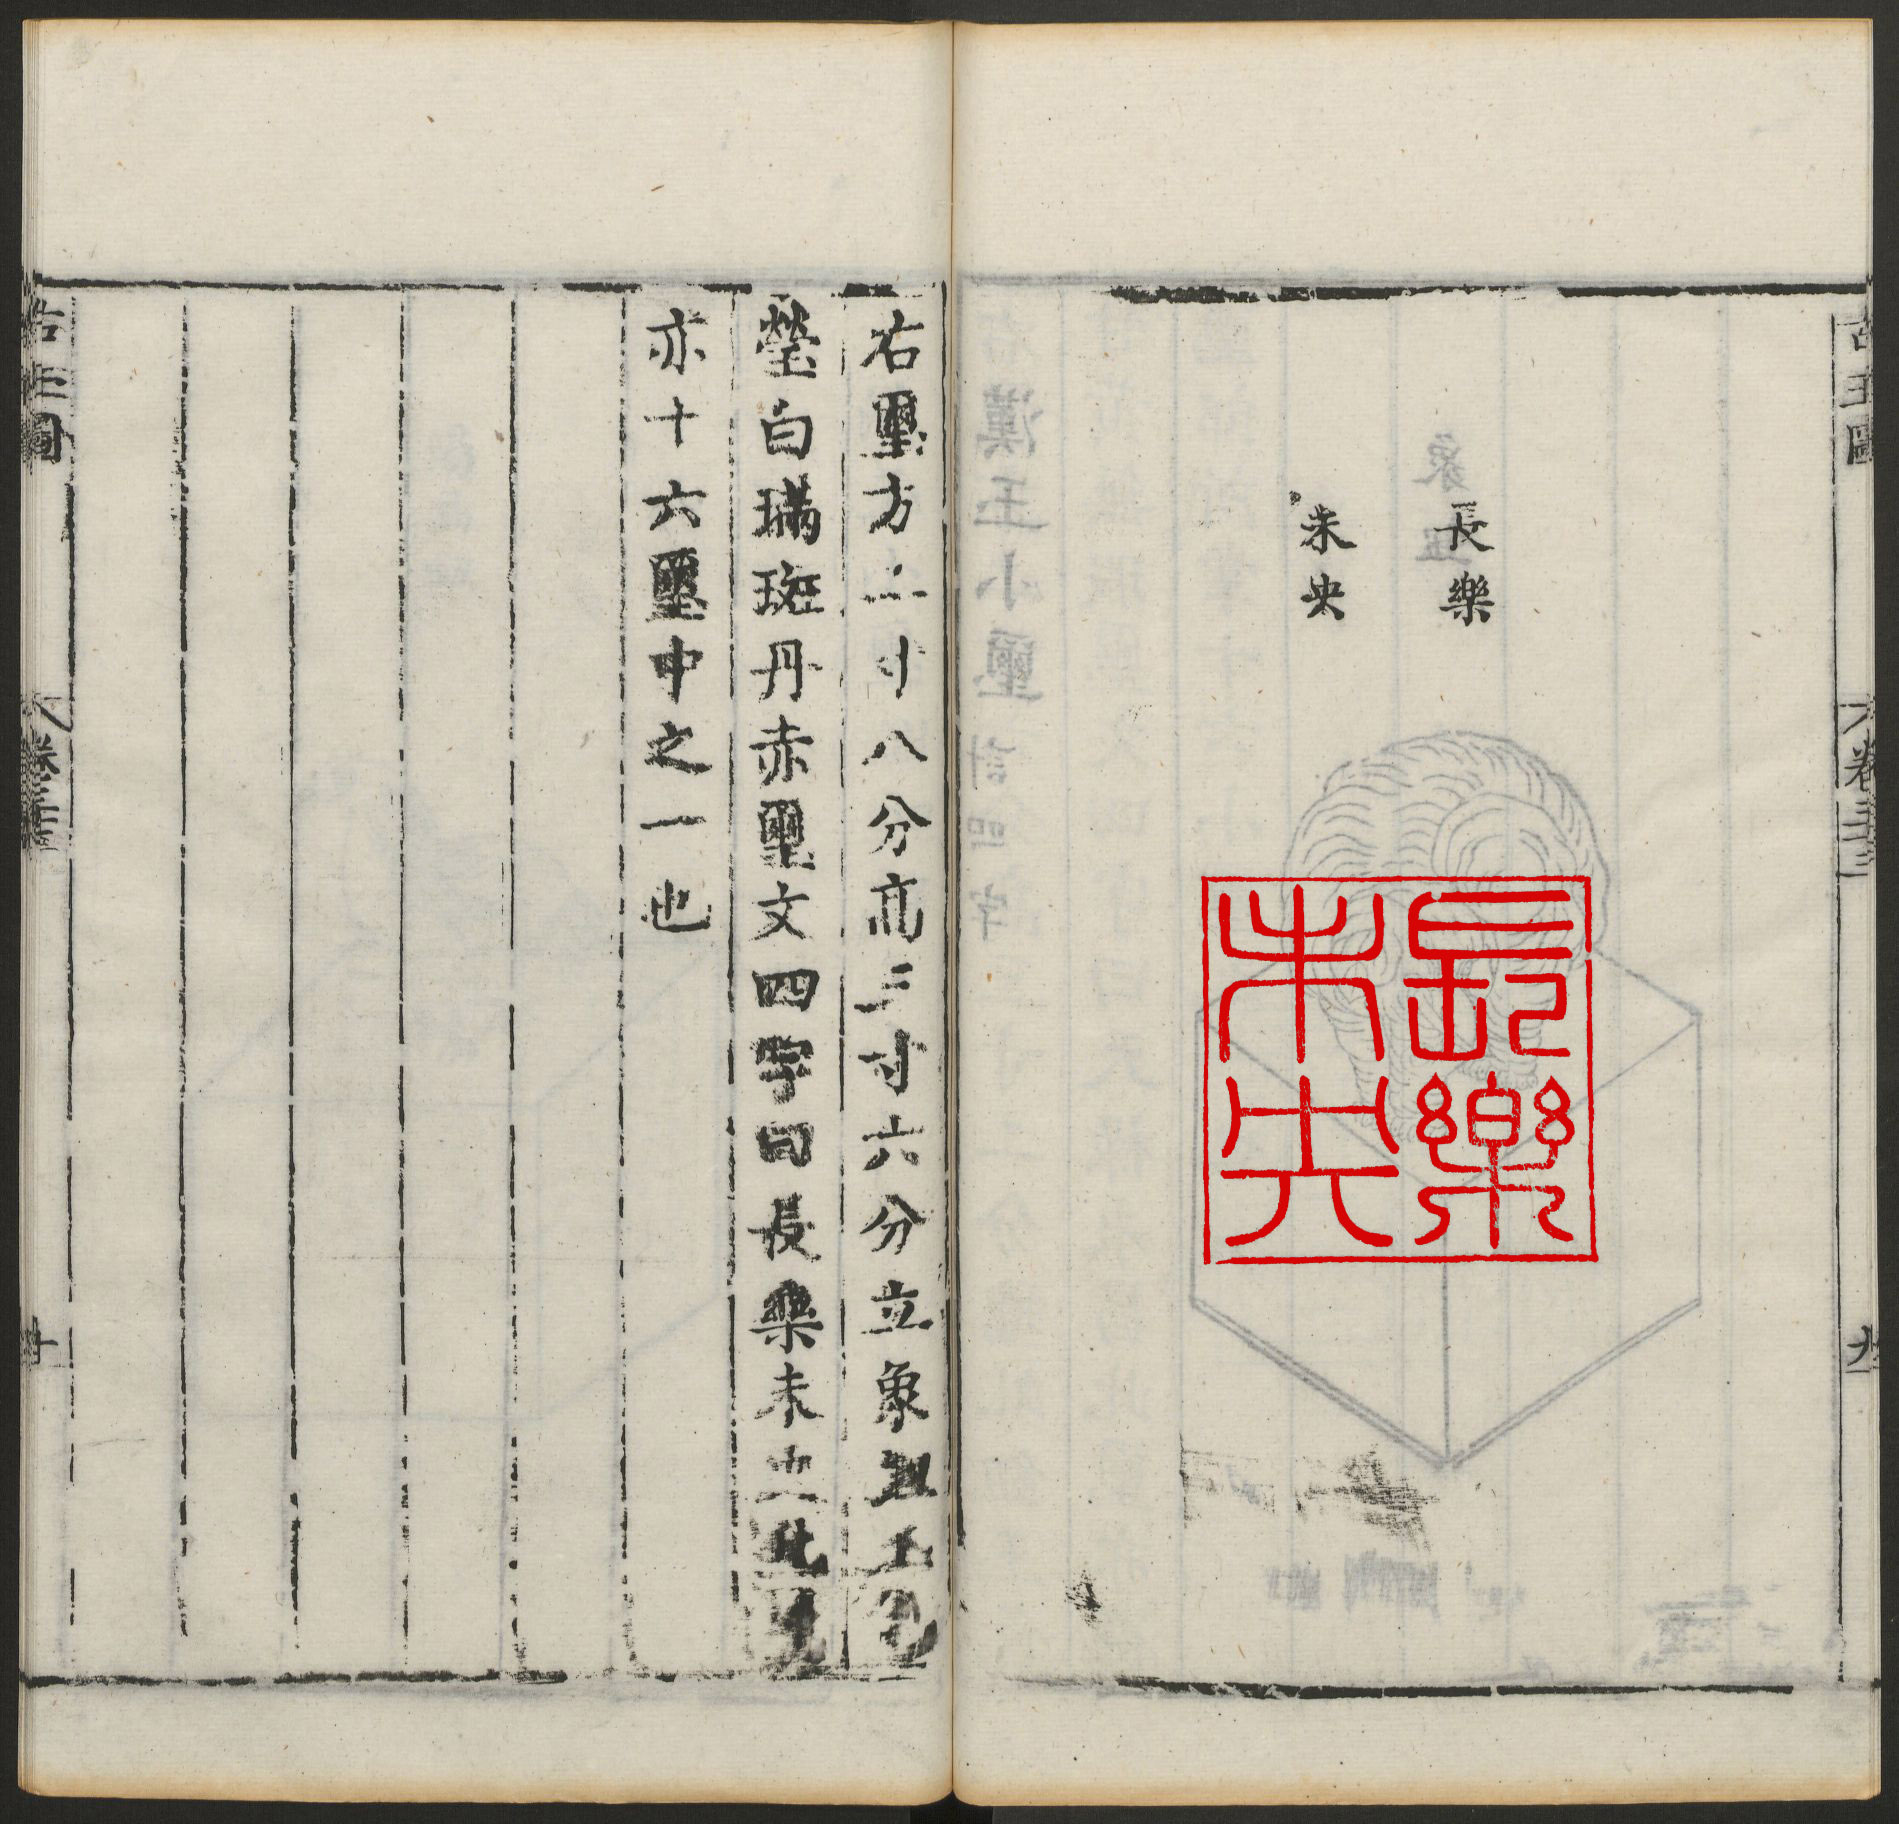 長樂
未央
長樂
未央
右璽方二寸八分高三寸六分立象玉
瑩白璊斑丹赤璽文四字曰長樂未央此
亦十六璽中之一也
古玉圖
卷三